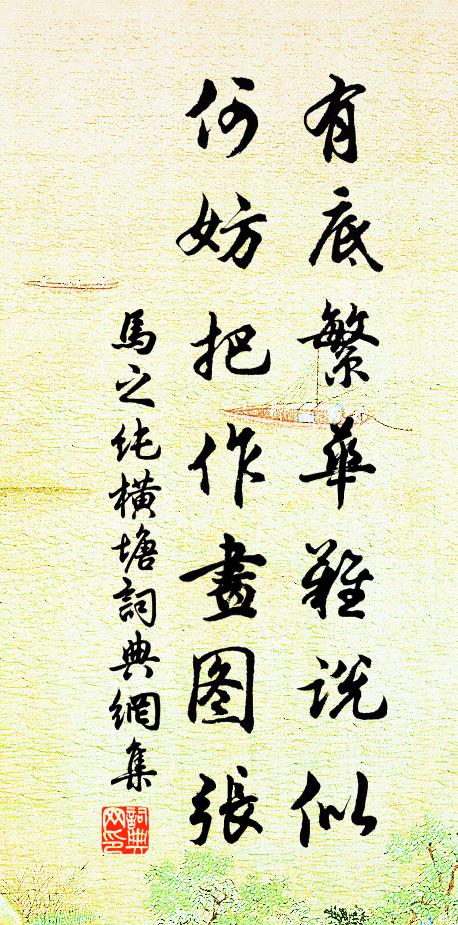 有底繁華難説似
何妨把作畫图張
馬之純橫塘詞典網集
詞典
网印